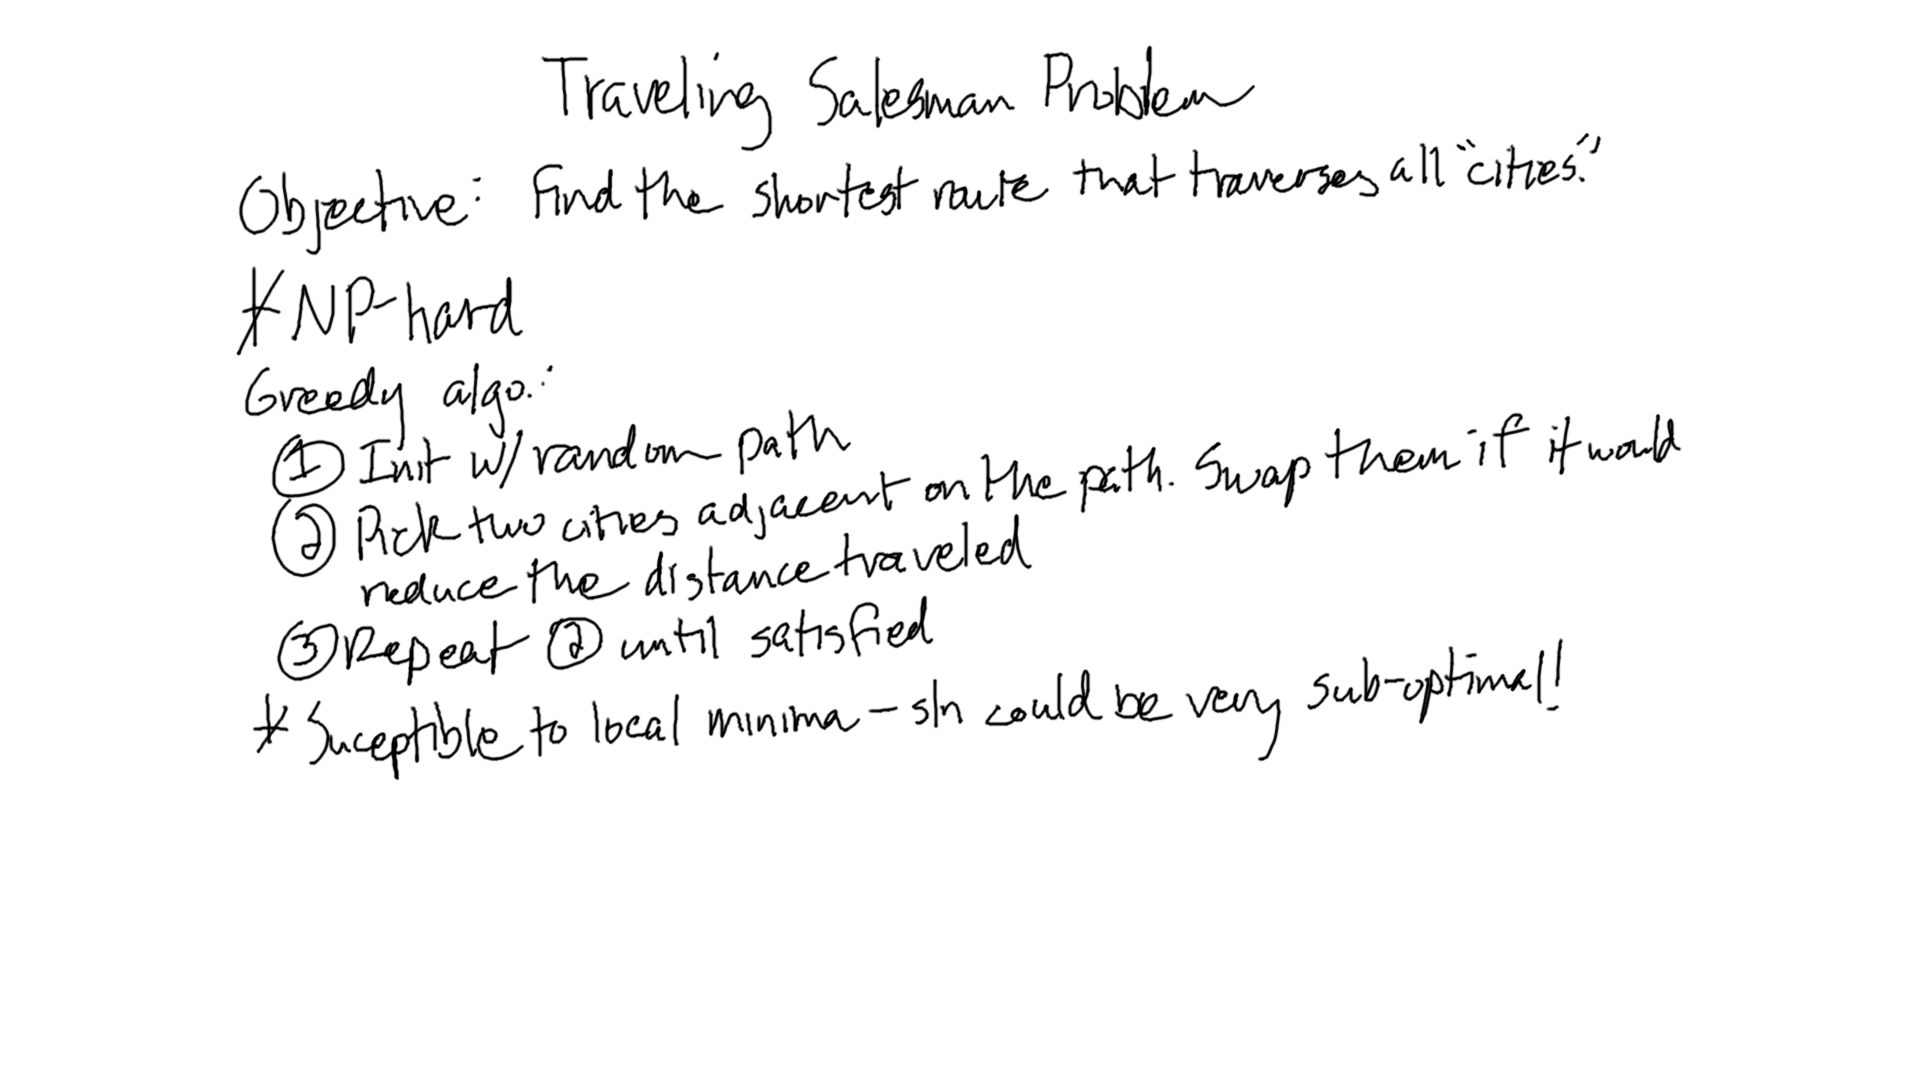 Traveling Salesman Problem
Objective: Find the shortest route that traverses all "cities."
* NP-hard
Greedy algo:
① Init w/ random path
② Pick two cities adjacent on the path. Swap them if it would
reduce the distance traveled
③ Repeat ② until satisfied
* Suceptible to local minima - sln could be very sub-optimal!